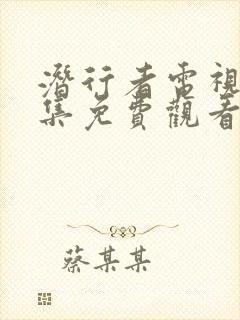 潛行者電視
集免費觀看
蔡某某